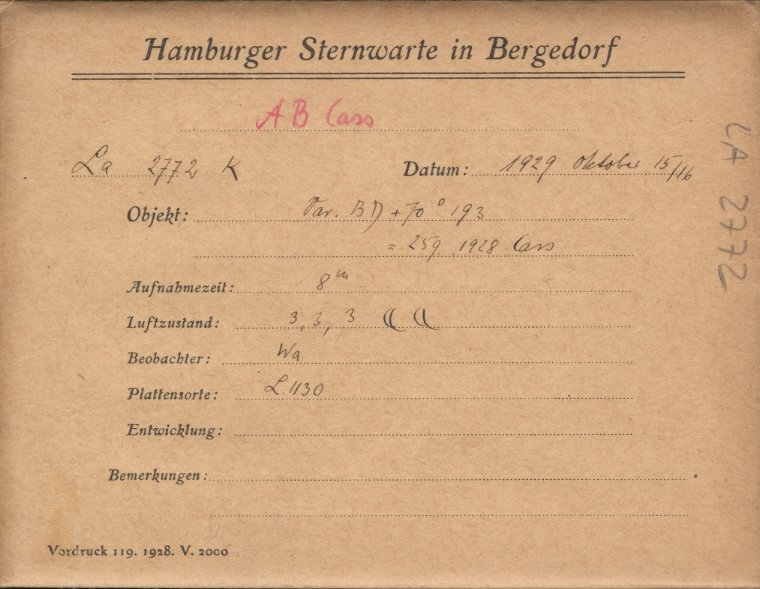 Hamburger Sternwarte in Bergedorf
AB Cass
La 2772 K Datum: 1929 Oktober 15/16
Objekt: Var. BD +70° 193
= 259.1928 Cass
Aufnahmezeit: 8m
Luftzustand: 3, 3, 3 ☾ ☾
Beobachter: Wa
Plattensorte: L 1130
Entwicklung:
Bemerkungen:
Vordruck 119. 1928. V. 2000
LA 2772